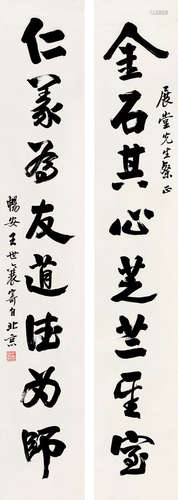 金石其心芝兰其室
展堂先生粲正
仁義為友道德为師
暢安王世襄寄自北京